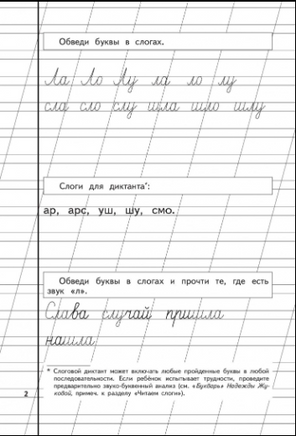 Обведи буквы в слогах.
Ла Ло Лу ла ло лу
сла сло слу шла шло шлу
Слоги для диктанта*:
ар, арс, уш, шу, смо.
Обведи буквы в слогах и прочти те, где есть
звук «л».
Слава случай пришла
нашла
* Слоговой диктант может включать любые пройденные буквы в любой
последовательности. Если ребёнок испытывает трудности, проведите
предварительно звуко-буквенный анализ (см. «Букварь» Надежды Жу-
ковой, примеч. к разделу «Читаем слоги»).
2